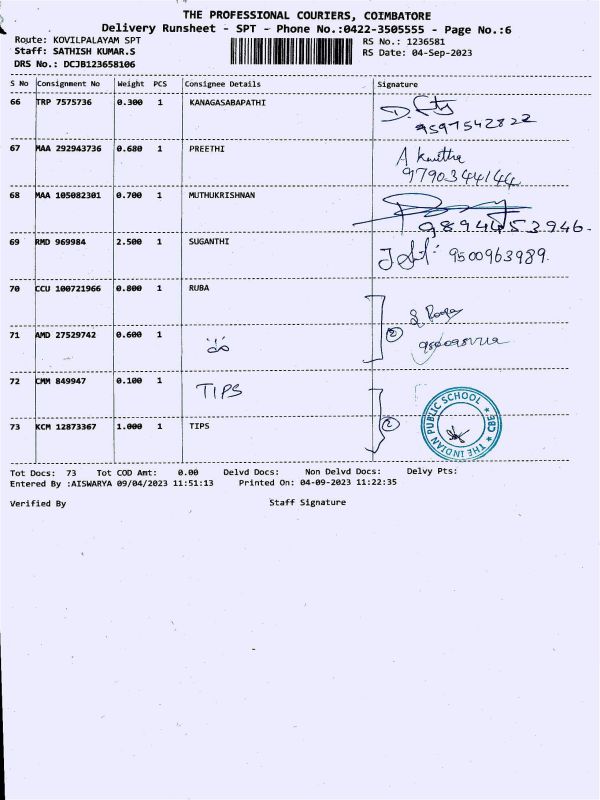 THE PROFESSIONAL COURIERS, COIMBATORE
Delivery Runsheet - SPT - Phone No.:0422-3505555 - Page No.:6
Route: KOVILPALAYAM SPT RS No.: 1236581
Staff: SATHISH KUMAR.S RS Date: 04-Sep-2023
DRS No.: DCJB123658106
S No Consignment No Weight PCS Consignee Details Signature
66 TRP 7575736 0.300 1 KANAGASABAPATHI
9597542822
67 MAA 292943736 0.680 1 PREETHI
9790344144
68 MAA 105082301 0.700 1 MUTHUKRISHNAN
9894453946.
69 RMD 969984 2.500 1 SUGANTHI 9500963989.
70 CCU 100721966 0.800 1 RUBA
71 AMD 27529742 0.600 1 2
72 CMM 849947 0.100 1 TIPS
73 KCM 12873367 1.000 1 TIPS 2
THE INDIAN PUBLIC SCHOOL * CBE *
Tot Docs: 73 Tot COD Amt: 0.00 Delvd Docs: Non Delvd Docs: Delvy Pts:
Entered By :AISWARYA 09/04/2023 11:51:13 Printed On: 04-09-2023 11:22:35
Verified By Staff Signature